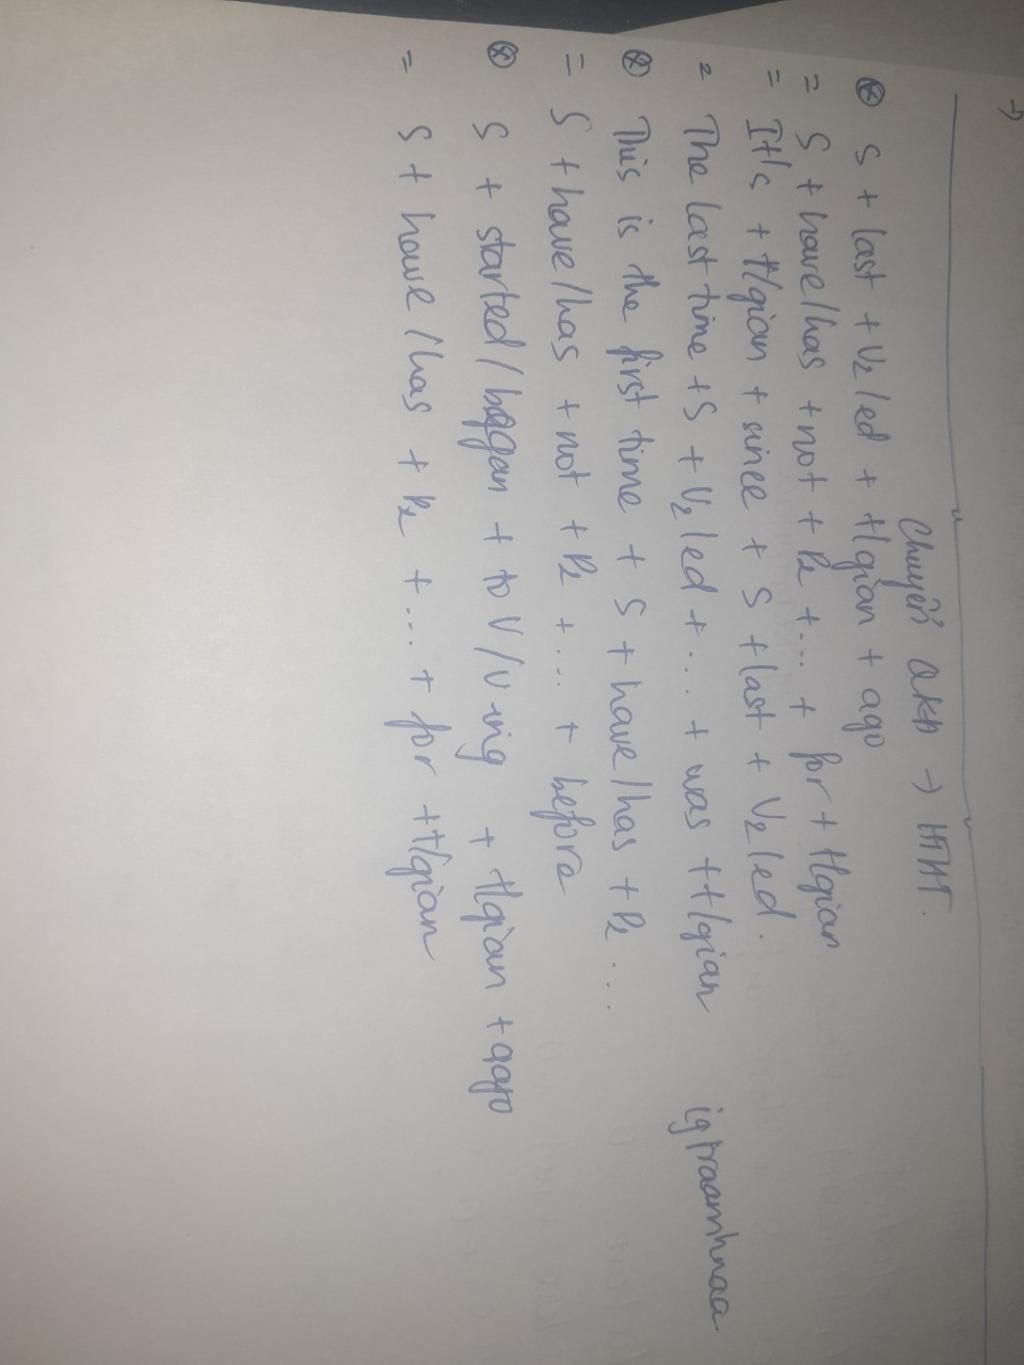 Chuyển QKĐ → HTHT.
⊛ S + last + V2/ed + t/gian + ago
= S + have/has + not + P2 + ... + for + t/gian
= It's + t/gian + since + S + last + V2/ed.
= The last time + S + V2/ed + ... + was + t/gian
⊛ This is the first time + S + have/has + P2 ...
= S + have/has + not + P2 + ... + before
⊛ S + started/began + to V/V ing + t/gian + ago
= S + have/has + P2 + ... + for + t/gian
igtraamhnaa